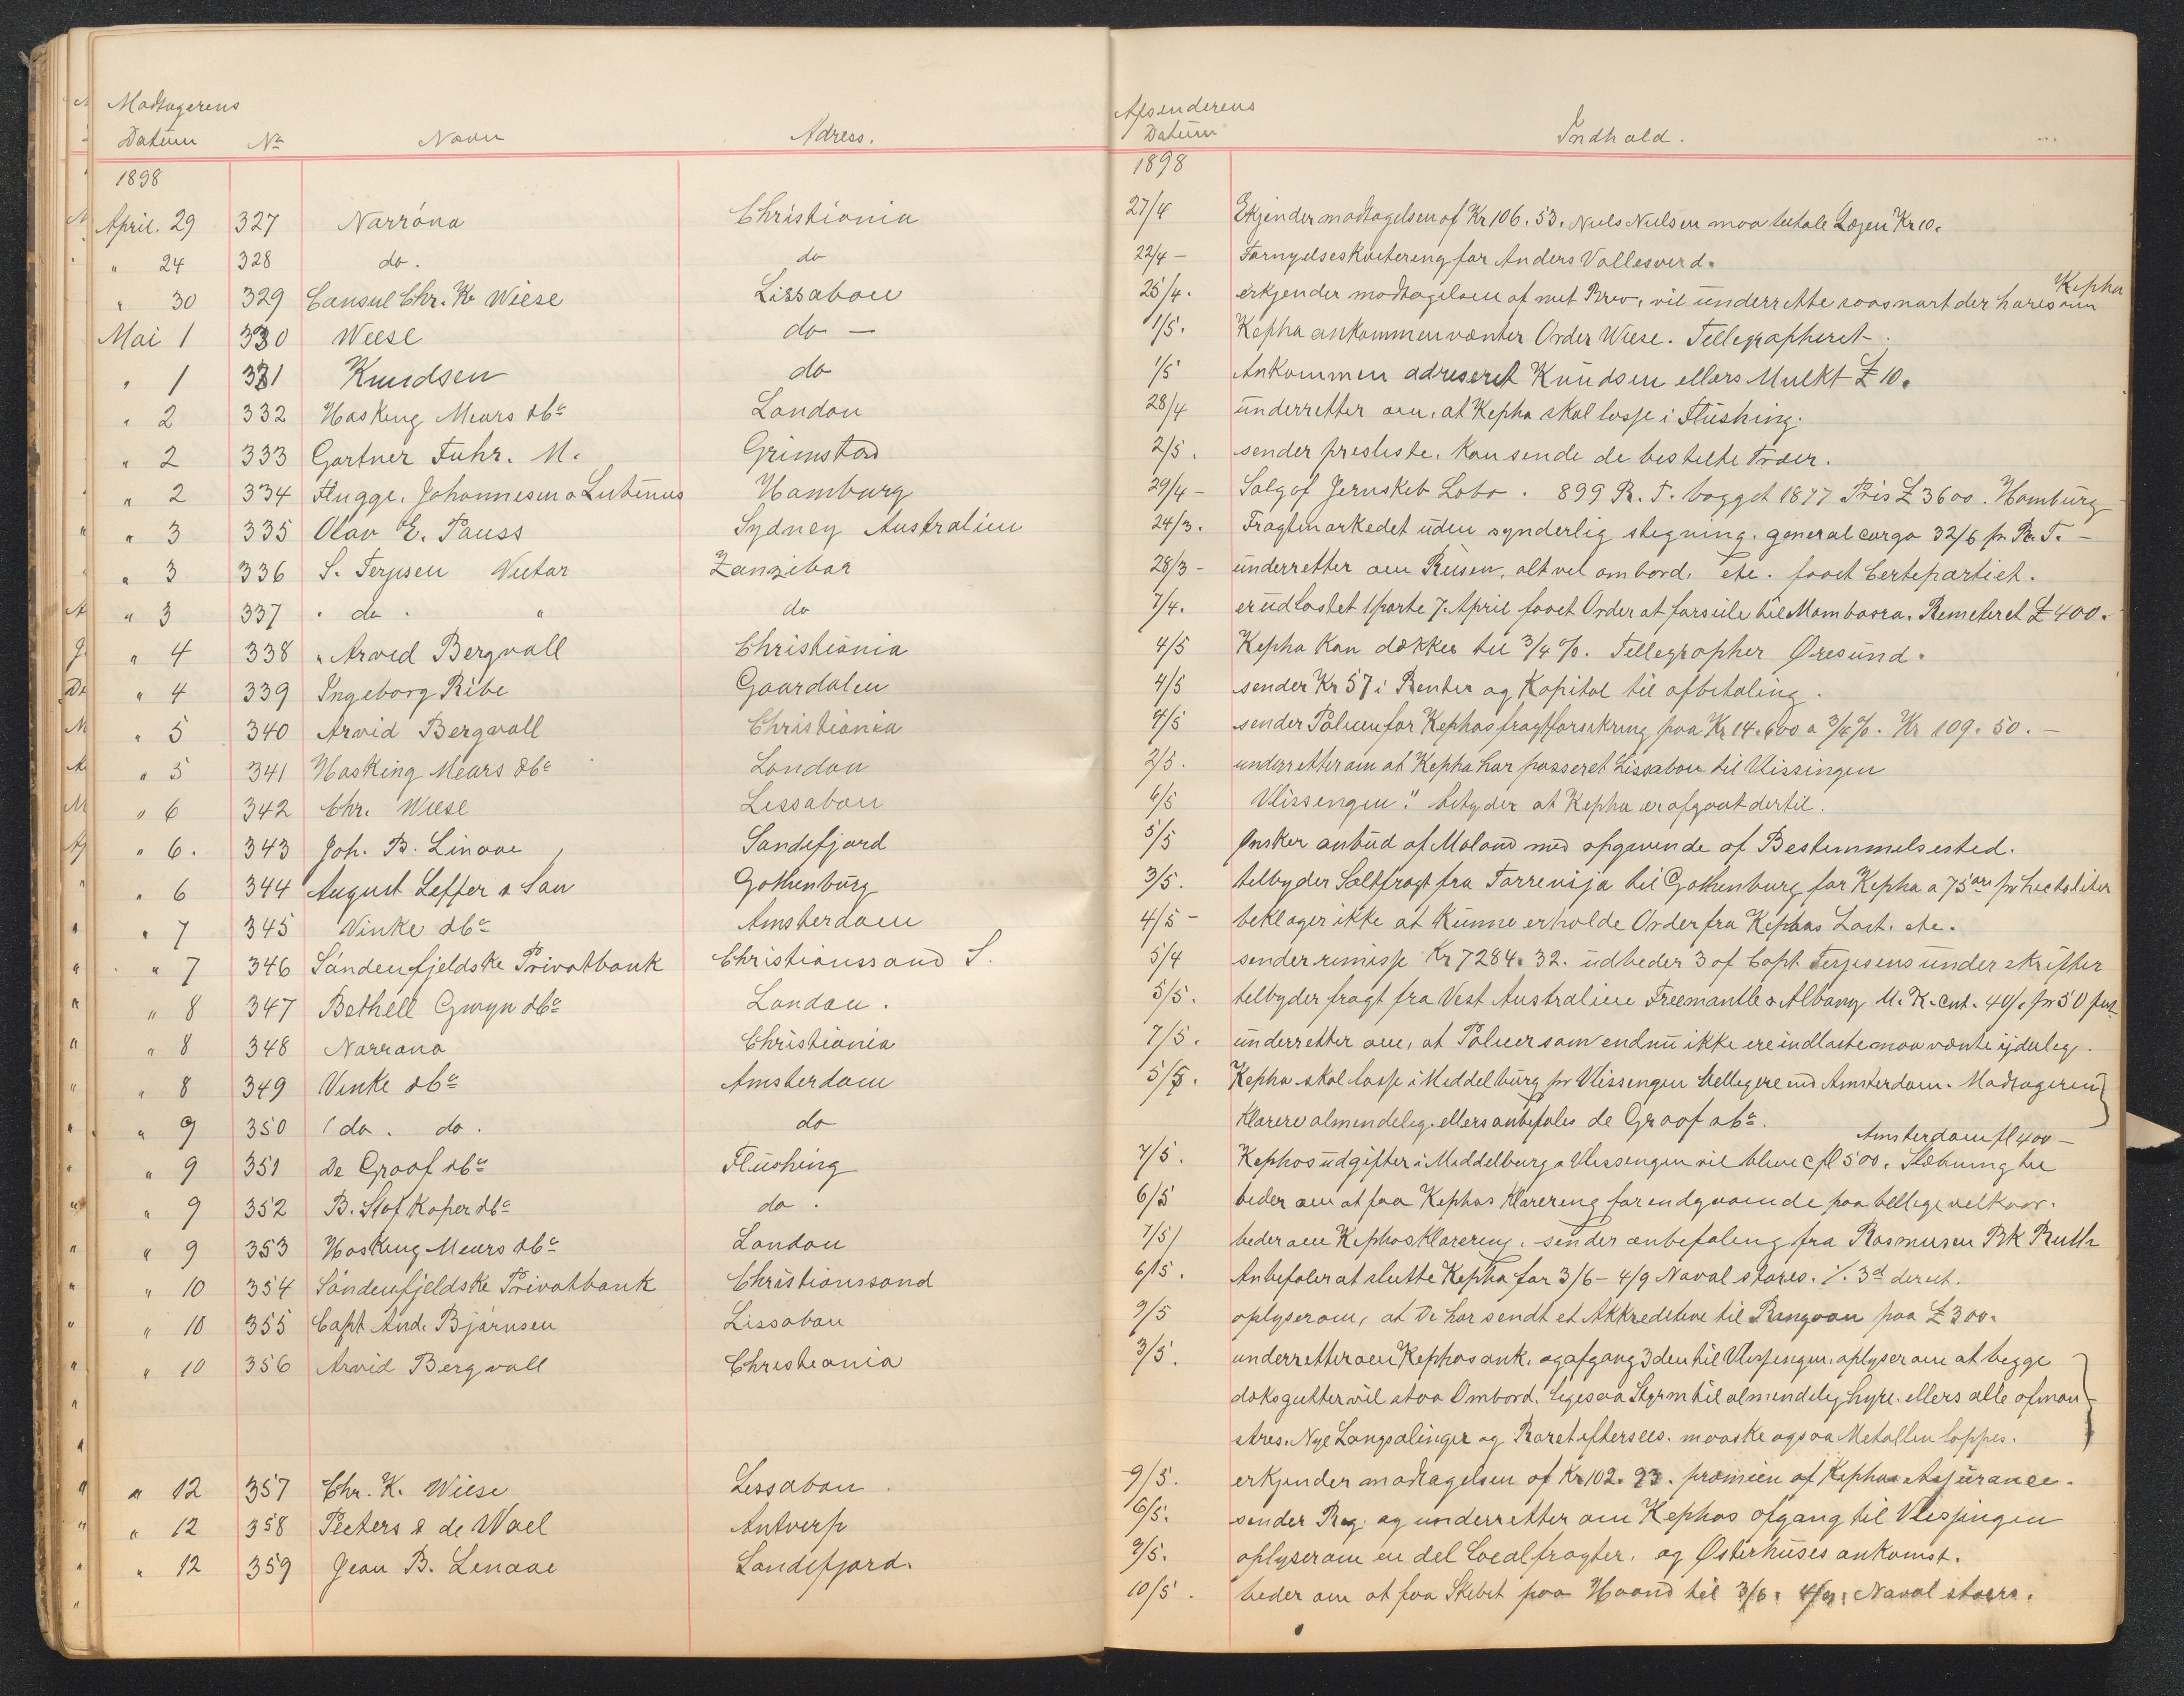 Modtagerens
Datum No Navn Adress. Afsenderens Datum Indhold.
1898 1898
April. 29 327 Norröna Christiania 27/4 Erkjender modtagelsen af Kr 106.53. Niels Nielsen maa betale Lægen Kr 10.
" 24 328 do. do 22/4 - Fornyelseskvitering for Anders Vallesverd.
" 30 329 Consul Chr. K. Wiese Lissabon 25/4. erkjender modtagelsen af mit Brev, vil underrette saasnart der høres om Kepha
Mai 1 330 Wiese do - 1/5. Kepha ankommen venter Order Wiese. Tellegrapheret.
" 1 331 Knudsen do 1/5 Ankommen adresseret Knudsen ellers Mulkt £ 10.
" 2 332 Hasking Mears & Co London 28/4 underretter om, at Kepha skal losse i Flushing.
" 2 333 Gartner Fuhr. M. Grimstad 2/5. sender prisliste. Kan sende de bestilte Træer.
" 2 334 Flugge, Johannesen & Lubinus Hamburg 29/4 - Salg af Jernskib Lobo. 899 R. T. bygget 1877 Pris £ 3600. Hamburg
" 3 335 Olav E. Pauss Sydney Australien 24/3. Fragtmarkedet uden synderlig stegning. general cargo 32/6 pr R. T. -
" 3 336 S. Terjesen Victor Zanzibar 28/3 - underretter om Reisen, alt vel ombord. etc. faaet Certepartiet.
" 3 337 " do " do 7/4. er udlostet 1 parte 7. April faaet Order at forseile til Mombassa. Remeteret £ 400.
" 4 338 Arvid Bergvall Christiania 4/5 Kepha kan dækkes til 3/4 %. Tellegrapher Øresund.
" 4 339 Ingeborg Ribe Gaardalen 4/5 sender Kr 57 i Renter og Kapital til afbetaling.
" 5 340 Arvid Bergvall Christiania 4/5 sender Policen for Kephas fragtforsikring paa Kr 14.600 a 3/4 %. Kr 109.50. -
" 5 341 Hasking Mears & Co London 2/5. underretter om at Kepha har passeret Lissabon til Vlissingen
" 6 342 Chr. Wiese Lissabon 6/5 Vlissengen." betyder at Kepha er afgaat dertil.
" 6. 343 Joh. B. Linaae Sandefjord 5/5 ønsker anbud af Maland med opgivende af Bestemmelsested.
" 6 344 August Leffer & Søn Gothenburg 3/5. telbyder Saltfragt fra Torrevieja til Gothenburg for Kepha a 75 øre pr hectoliter
" 7 345 Vinke & Co Amsterdam 4/5 - beklager ikke at kunne erholde Order fra Kephas Last. etc.
" 7 346 Søndenfjeldske Privatbank Christianssand S. 5/4 sender remisse Kr 7284.32. udbeder 3 af Capt Terjesens underskrifter
" 8 347 Bethell Gwyn & Co London. 5/5. telbyder fragt fra Vest Australien Freemantle & Albany U. K. cnt. 40/. pr 50
" 8 348 Norrøna Christiania 7/5. underretter om, at Policer som endnu ikke ere indløste maa vente
" 8 349 Vinke & Co Amsterdam 5/5. Kepha skal losse i Middelburg pr Vlissengen billegere end Amsterdam. Modtageren
Klarere almendelig. ellers anbefales de Graaf & Co.
" 9 350 do. do. do Amsterdam fl 400 -
" 9 351 de Graaf & Co Flushing 7/5. Kephas udgifter i Middelburg & Vlissengen vil blive c fl 500. Slæbning til
" 9 352 B. Stofkoper & Co do. 6/5 beder om at faa Kephas Klarering for endgaaende paa bellige velkaar.
" 9 353 Hasking Mears & Co London 7/5) beder om Kephas Klarering. sender anbefaling fra Rasmusen Bk Ruth
" 10 354 Søndenfjeldske Privatbank Christianssand 6/5. Anbefaler at slutte Kepha for 3/6 - 4/9 Naval stores. %. 3d derut.
" 10 355 Capt And. Bjørnsen Lissabon 9/5 oplyser om, at de har sendt et Akkreditive til Rangoon paa £ 300.
" 10 356 Arvid Bergvall Christiania 3/5. underretter om Kephas ank. og afgang 3den til Vlissingen, oplyser om at begge
doksgutter vil staa Ombord. legesaa Styrm til almendelig hyre. ellers alle afmøn-
stres. Nye Langsalinger og Roret eftersees. maaske ogsaa Metallen lappes.
" 12 357 Chr. K. Wiese Lissabon. 9/5. erkjender modtagelsen af Kr 102.93. præmien af Kephas Assurance.
" 12 358 Peeters & de Wael Antverp 6/5. sender Reg. og underretter om Kephas afgang til Vlissingen
" 12 359 Jean B. Linaae Sandefjord. 9/5. oplyser om en del Localfragter. og Østerhuses ankomst.
10/5. beder om at faa Skibet paa Haand til 3/6. 4/9. Naval stoers.